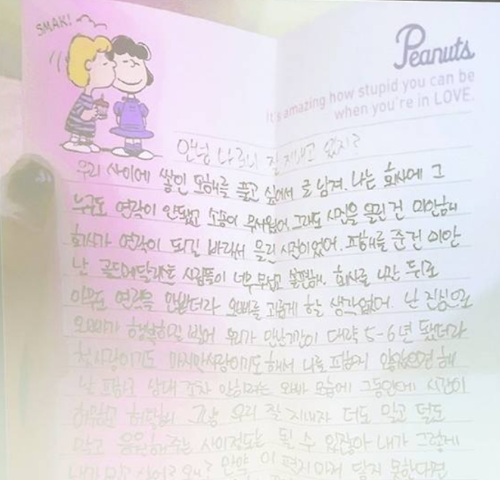 SMAK!
Peanuts
It's amazing how stupid you can be
when you're in LOVE.
안녕 나 잘 지내고 있지?
우리 사이에 쌓인 오해를 풀고 싶어서 로 남겨. 나는 회사에 그
누구도 연락이 안됐고 소송이 무서웠어 그래도 사진을 올린 건 미안해
회사가 연락이 되길 바라서 올린 사진이었어. 피해를 준건 미안
난 골드메달리스트 사람들이 너무 무섭고 불편해. 회사를 나간 뒤로
아무도 연락을 안받더라 오빠를 괴롭게 할 생각 없어. 난 진심으로
오빠가 행복하길 빌어 우리가 만난기간이 대략 5-6년 됐더라
첫사랑이기도 마지막사랑이기도 해서 나를 피하지 않았으면 해
날 피하고 상대조차 안하려는 오빠 모습에 그동안에 시간이
허무하고 그냥 우리 잘 지내자 더도 말고 덜도
말고 응원해주는 사이정도는 될 수 있잖아 내가 그렇게
내가 밉고 싫어? 만약 이 편지마저 닿지 못한다면